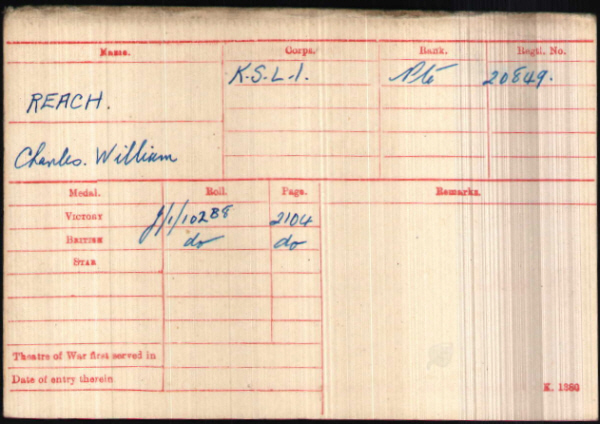 Name. Corps. Rank. Regtl. No.
K.S.L.I. Pte 20849.
REACH.
Charles. William
Medal. Roll. Page. Remarks.
VICTORY J/1/102B8 2104
BRITISH do do
STAR
Theatre of War first served in
Date of entry therein
K. 1380